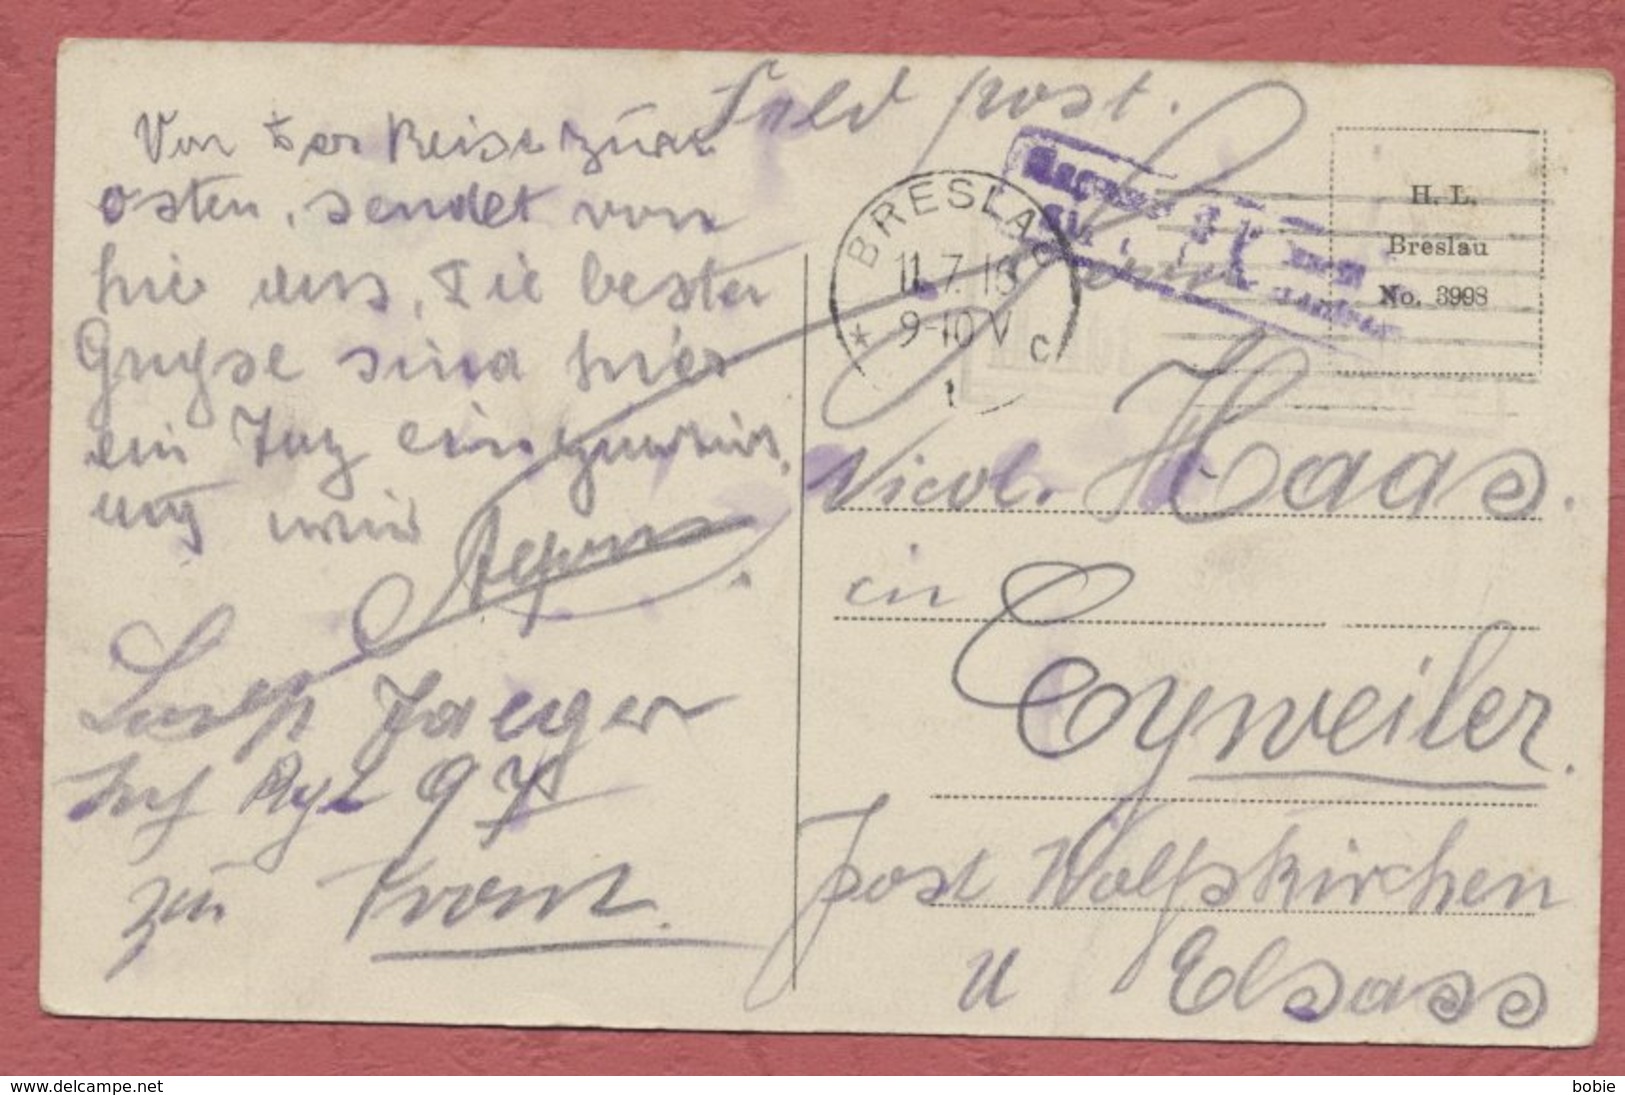 Feld post.
Von der Reise zurn
osten, sendet von
hie aus, die besten
Grüsse sind hier
ein Tag einquartirt.
und wir
Josep Jaeger
Inf Rgt 97
zur Front.
BRESLAU
11.7.16
9-10 V
* c
1
H. L.
Breslau
No. 3998
Herrn
Nicol. Haas.
in
Eyweiler.
post Wolfskirchen
U Elsass
www.delcampe.net
bobie